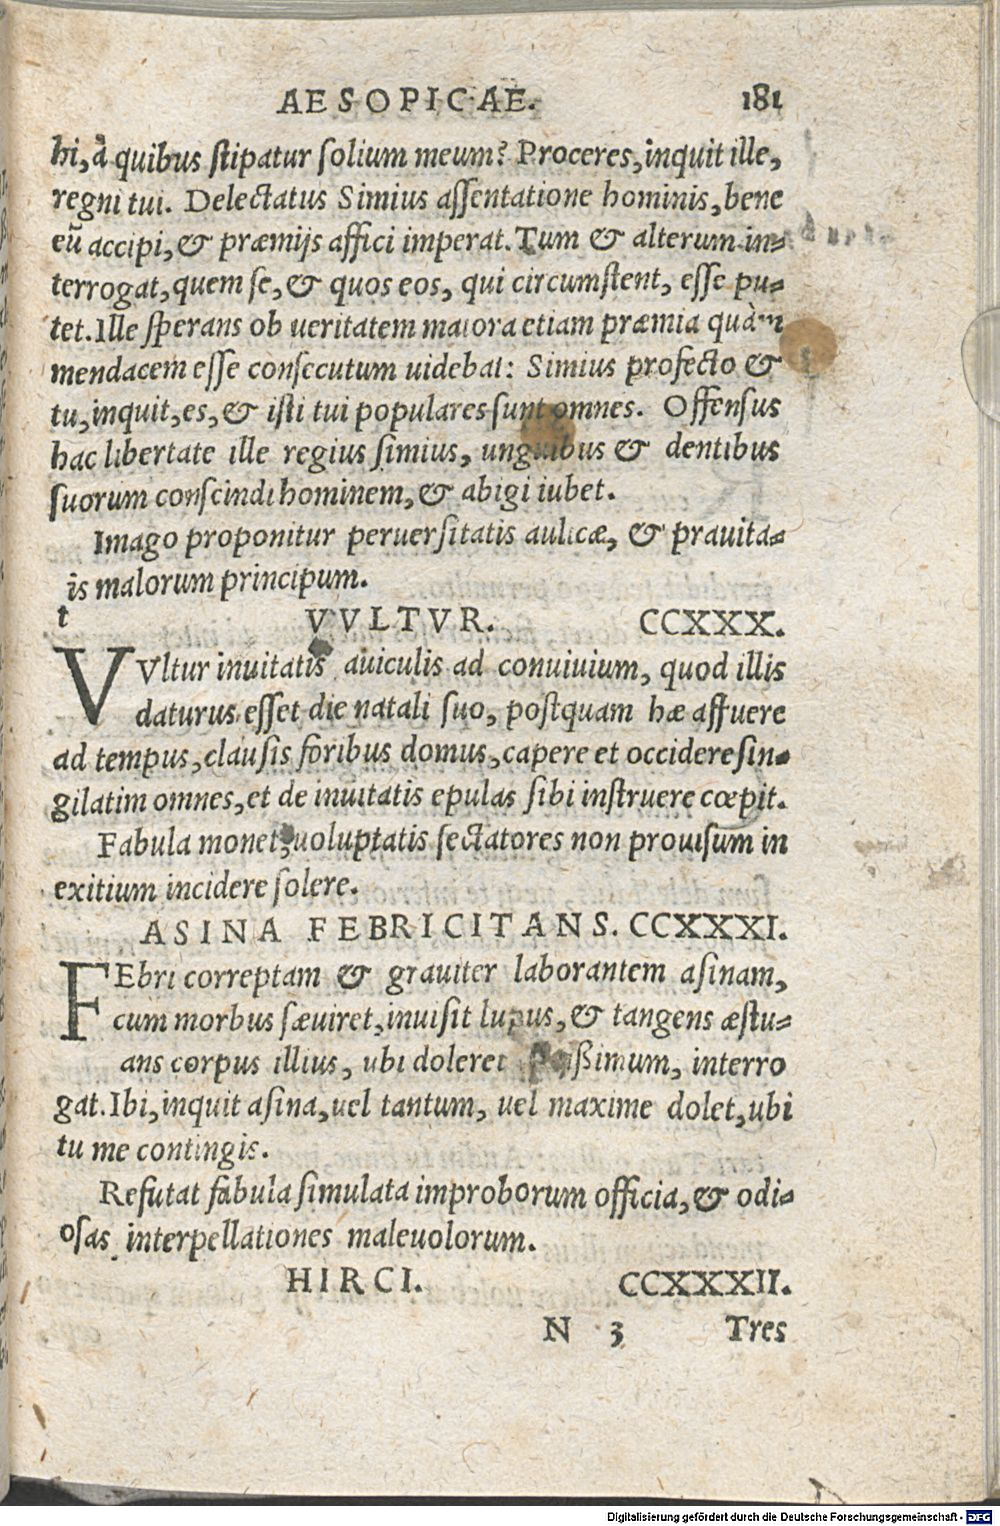 AESOPICAE. 181
hi, à quibus stipatur solium meum? Proceres, inquit ille,
regni tui. Delectatus Simius assentatione hominis, bene
eū accipi, & præmijs affici imperat. Tum & alterum in-
terrogat, quem se, & quos eos, qui circumstent, esse pu-
tet. Ille sperans ob ueritatem maiora etiam præmia quàm
mendacem esse consecutum uidebat: Simius profecto &
tu, inquit, es, & isti tui populares sunt omnes. Offensus
hac libertate ille regius simius, unguibus & dentibus
suorum conscindi hominem, & abigi iubet.
Imago proponitur peruersitatis aulicæ, & prauita-
is malorum principum.
t VVLTVR. CCXXX.
VVltur inuitatis auiculis ad conuiuium, quod illis
daturus esset die natali suo, postquam hæ affuere
ad tempus, clausis foribus domus, capere et occidere sin-
gilatim omnes, et de inuitatis epulas sibi instruere cœpit.
Fabula monet, uoluptatis sectatores non prouisum in
exitium incidere solere.
ASINA FEBRICITANS. CCXXXI.
FEbri correptam & grauiter laborantem asinam,
cum morbus sæuiret, inuisit lupus, & tangens æstu-
ans corpus illius, ubi doleret potißimum, interro
gat. Ibi, inquit asina, uel tantum, uel maxime dolet, ubi
tu me contingis.
Refutat fabula simulata improborum officia, & odi-
osas interpellationes maleuolorum.
HIRCI. CCXXXII.
N 3 Tres
Digitalisierung gefördert durch die Deutsche Forschungsgemeinschaft - DFG